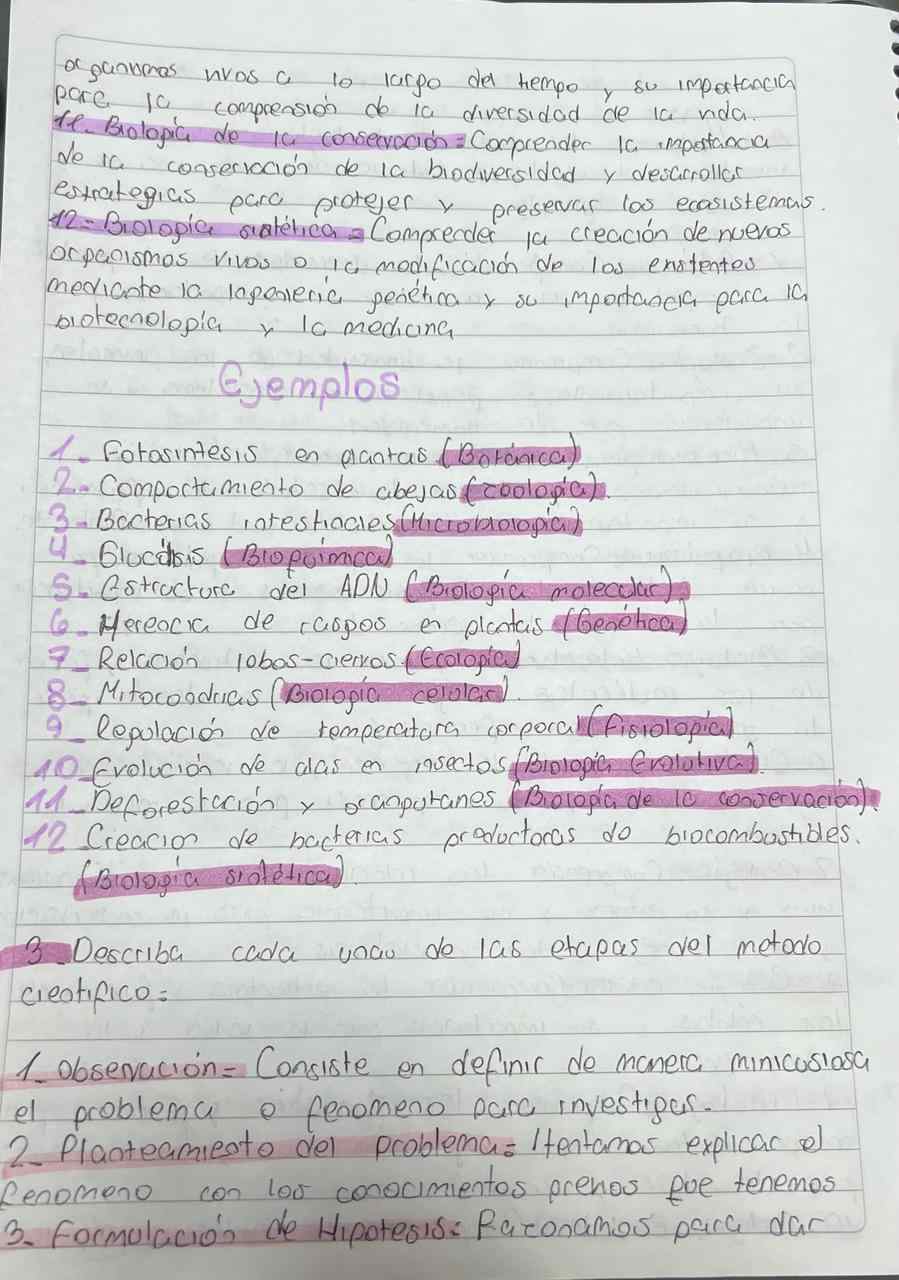 organismos vivos a lo largo del tiempo y su importancia
para la comprensión de la diversidad de la vida.
11- Biología de la conservación = Comprender la importancia
de la conservación de la biodiversidad y desarrollar
estrategias para proteger y preservar los ecosistemas.
12- Biología sintética = Comprender la creación de nuevos
organismos vivos o la modificación de los existentes
mediante la Ingeniería genética y su importancia para la
biotecnología y la medicina
Ejemplos
1- Fotosintesis en plantas (Botánica)
2- Comportamiento de abejas (zoología).
3- Bacterias intestinales (Microbiología)
4- Glucólisis (Bioquímica)
5- Estructura del ADN (Biología molecular).
6- Herencia de rasgos en plantas (Genética)
7- Relación lobos-ciervos (Ecología)
8- Mitocondrias (Biología celular).
9- Regulación de temperatura corporal (Fisiología)
10- Evolución de alas en insectos (Biología Evolutiva).
11- Deforestación y orangutanes (Biología de la conservación).
12 Creacion de bacterias productoras de biocombustibles.
(Biología sintética).
3- Describa cada unas de las etapas del metodo
cientifico =
1- Observación = Consiste en definir de manera minicosiosa
el problema o fenomeno para investigar.
2- Planteamiento del problema = Itentamos explicar el
fenomeno con los conocimientos previos que tenemos
3- Formulación de Hipotesis = Razonamos para dar